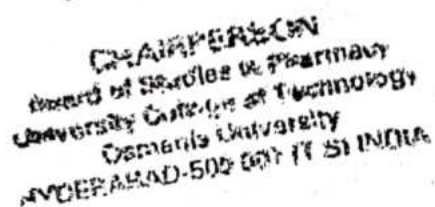 CHAIRPERSON
Board of Studies in Pharmacy
University College of Technology
Osmania University
HYDERABAD-500 007 (T S) INDIA